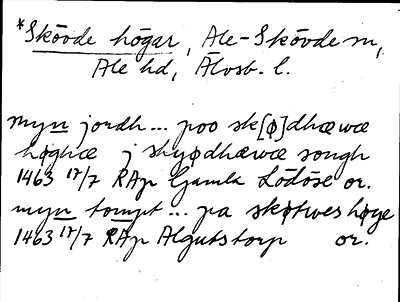 *Skövde högar, Ale-Skövde sn,
Ale hd, Älvsb. l.
myn jordh ... poo sk[ø]dhæwæ
høghæ j skyødhæwæ songh
1463 17/7 RAp Gamla Lödöse or.
myn tompt ... pa skøtwes høge
1463 17/7 RAp Algutstorp or.